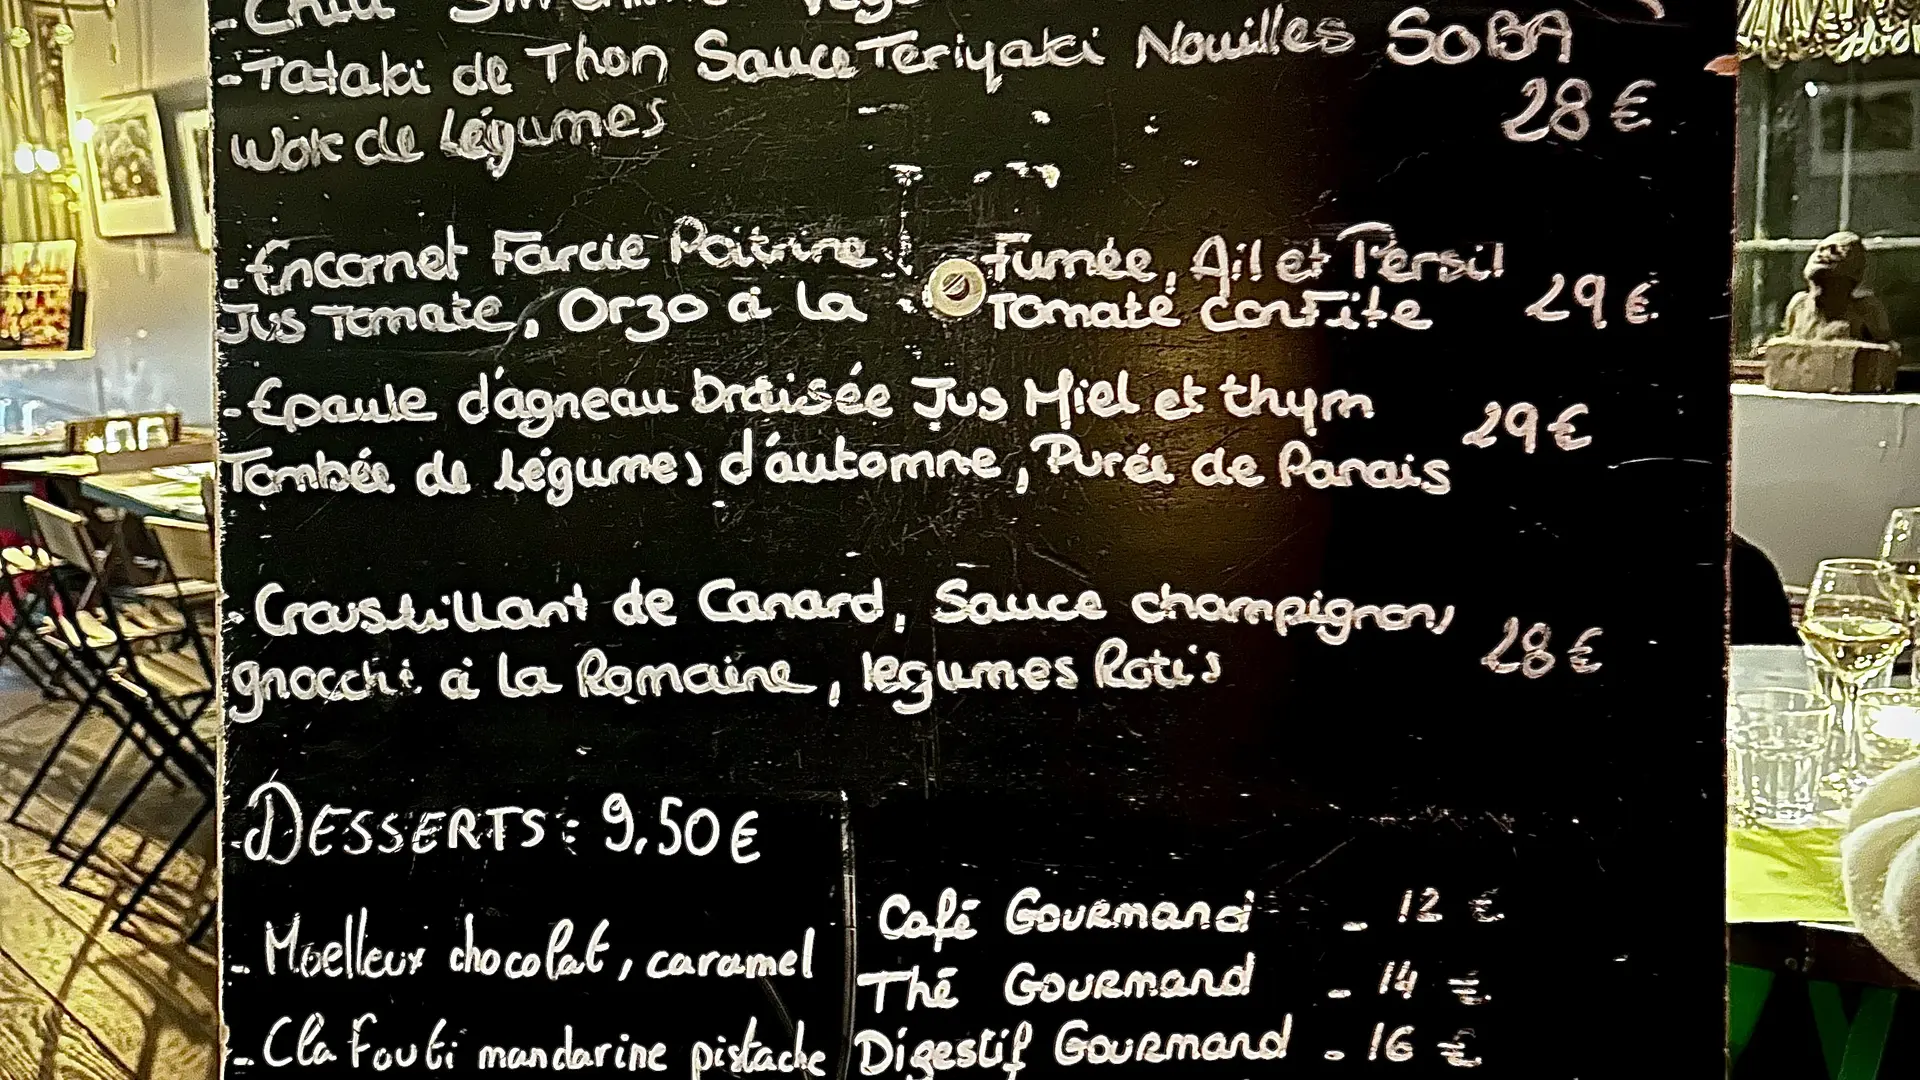 - Tataki de Thon Sauce Teriyaki Nouilles SOBA
Wok de Légumes 28 €
- Encornet Farcie Poitrine Fumée, Ail et Persil
Jus Tomate, Orzo à la Tomate confite 29 €
- Epaule d'agneau braisée Jus Miel et thym
29 €
Tombée de légumes d'automne, Purée de Panais
- Croustillant de Canard, Sauce champignons
28 €
gnocchi à la Romaine, légumes Rotis
- DESSERTS : 9,50 €
- Moelleux chocolat, caramel
- Clafouti mandarine pistache
Café Gourmand - 12 €
Thé Gourmand - 14 €
Digestif Gourmand - 16 €